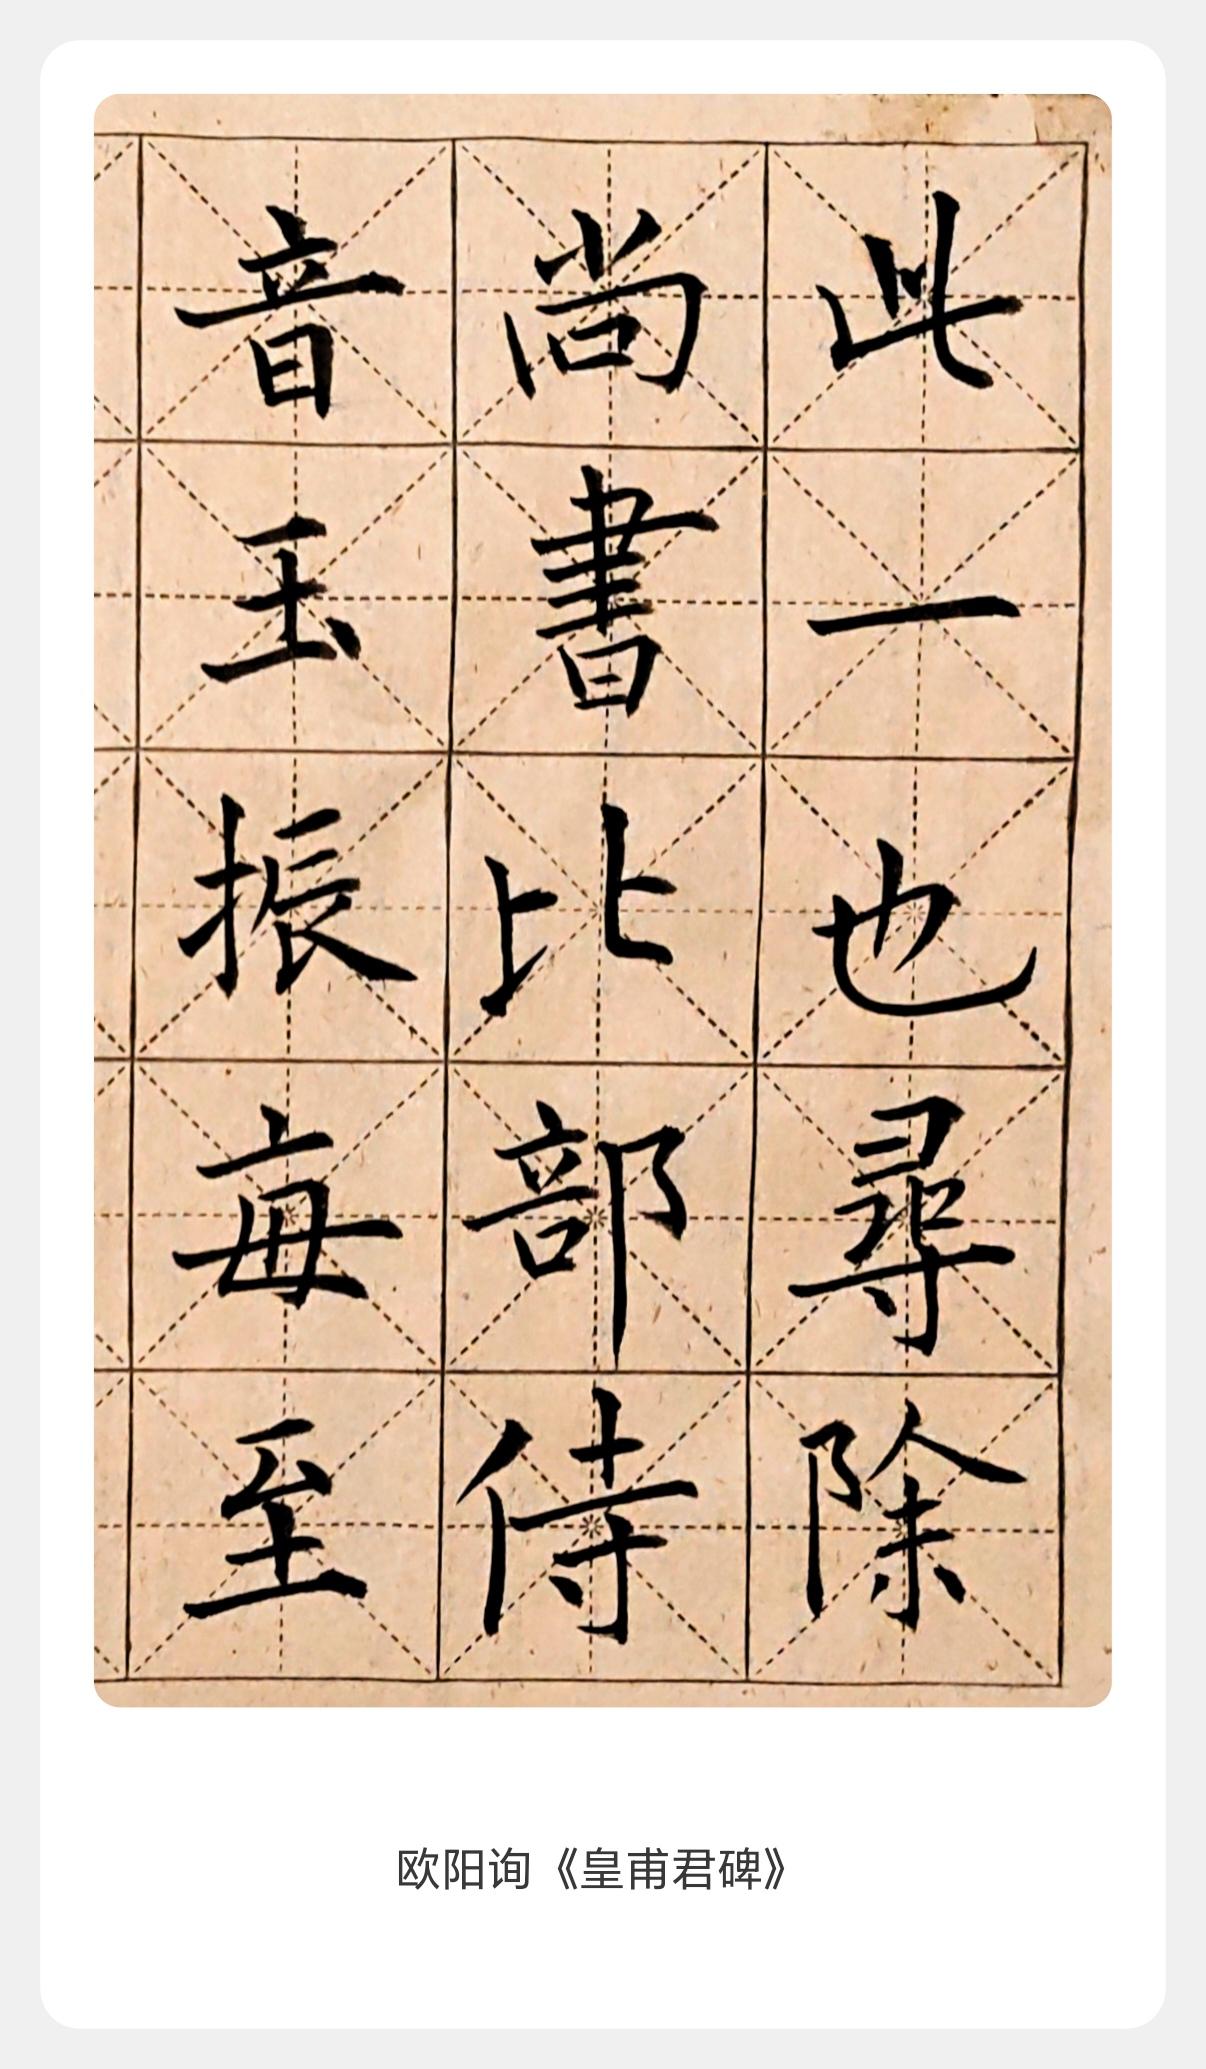 此一也尋除
尚書比部侍
音玉振每至
欧阳询《皇甫君碑》